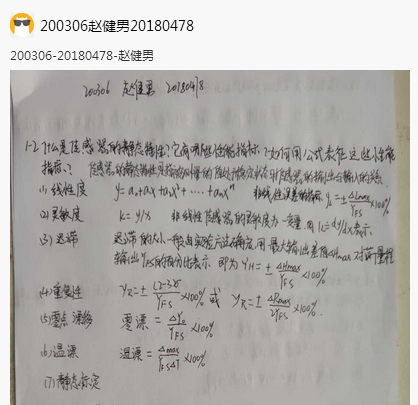 200306赵健男20180478
200306-20180478-赵健男
200306 赵健男 20180478
1-2 什么是传感器的静态特性?它有哪些性能指标?如何用公式表征这些性能
指标?
(1) 线性度 y=a₀+a₁x+a₂x²+……+aₙxⁿ 非线性误差的指标 ×100%
(2) 灵敏度 k=y/x 非线性传感器的灵敏度为一变量,用 k=dy/dx表示
(3) 迟滞 迟滞的大小一般由实验方法确定,用最大输出差值ΔHmax对满量程
输出YFS的百分比表示 即为 YH=±ΔHmax/YFS×100%
(4) 重复性 YR=±(2~3)δ/YFS×100% 或 YR=±ΔRmax/2YFS×100%
(5) 零点漂移 零漂=ΔY₀/YFS×100%
(6) 温漂 温漂=Δmax/YFSΔT×100%
(7) 静态标定